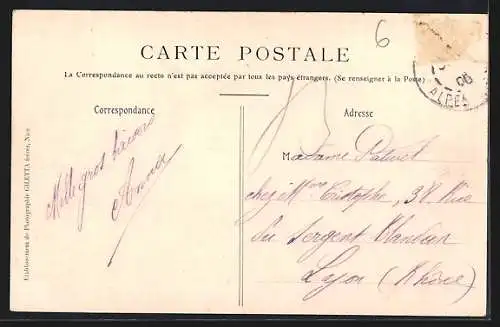 6
CARTE POSTALE
La Correspondance au recto n'est pas acceptée par tous les pays étrangers. (Se renseigner à la Poste)
Correspondance
Mille gros baisers
Adresse
Madame
chez Mme 37 Rue
Du Sergent Blandan
Lyon (Rhône)
Etablissement de Photographie GILETTA frères, Nice
06
ALPES